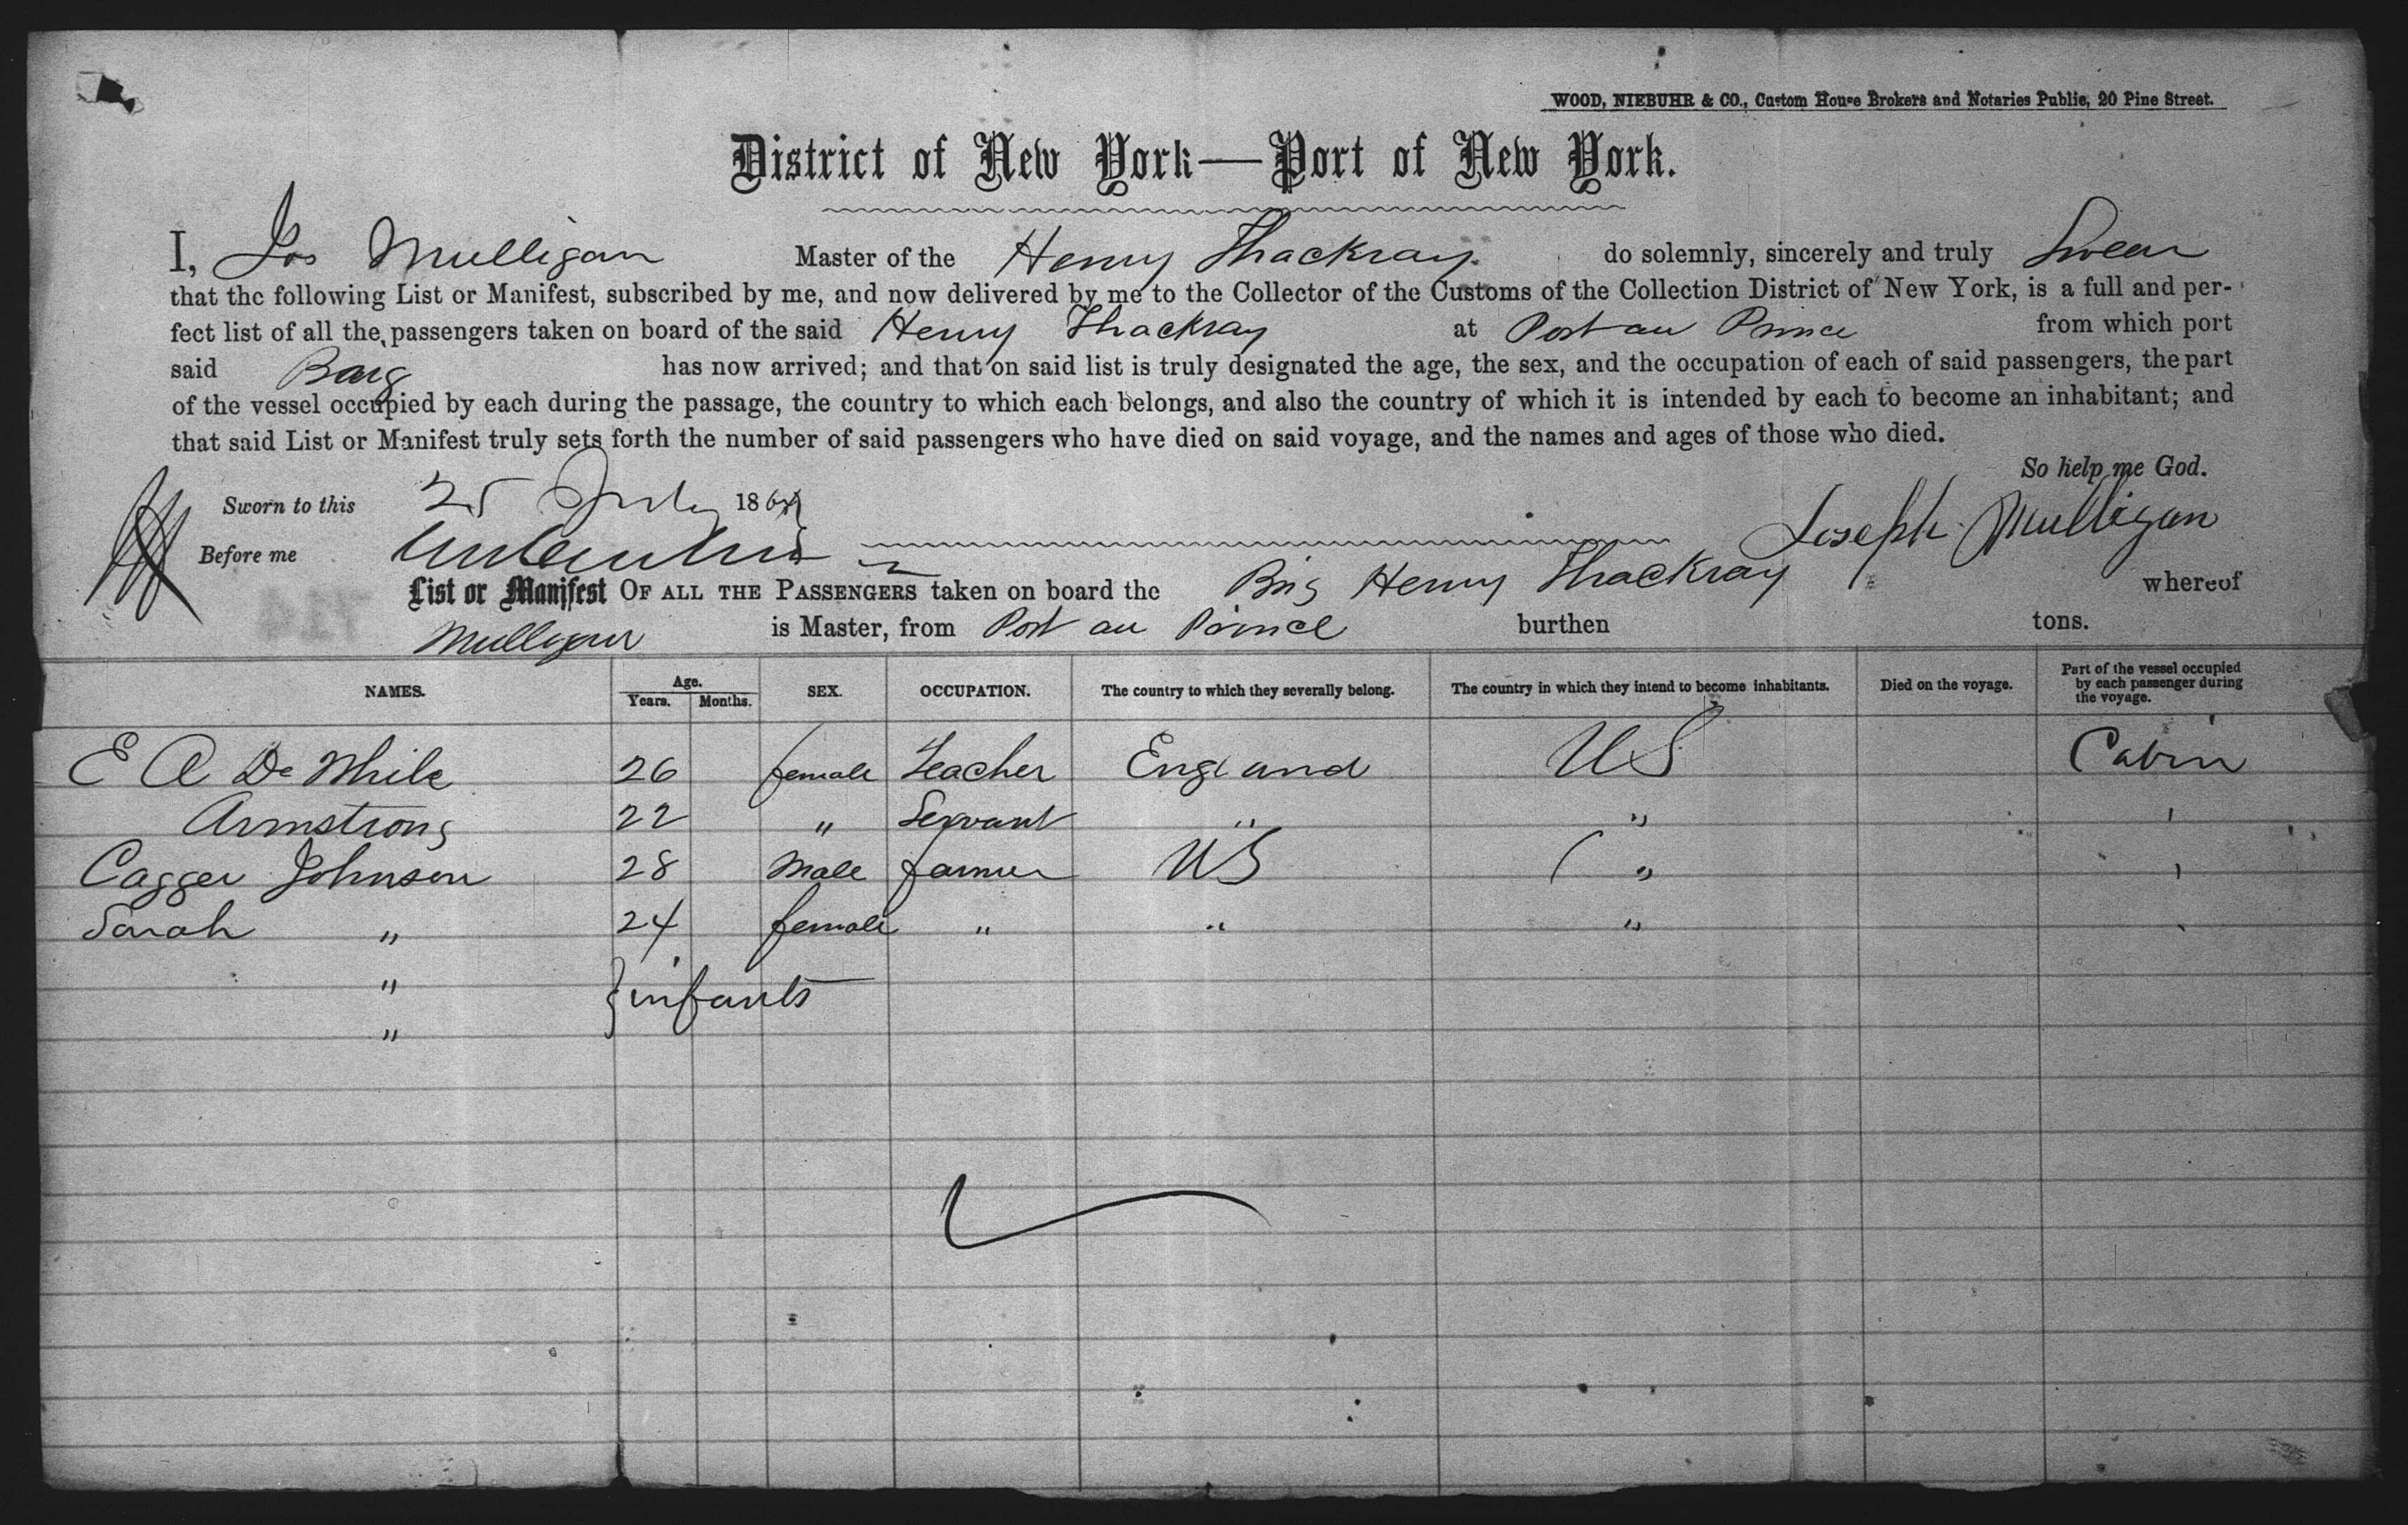 WOOD, NIEBUHR & CO., Custom House Brokers and Notaries Public, 20 Pine Street.
District of New York—Port of New York.
I, Jos Mulligan Master of the Henry Thackray do solemnly, sincerely and truly Swear
that the following List or Manifest, subscribed by me, and now delivered by me to the Collector of the Customs of the Collection District of New York, is a full and per-
fect list of all the passengers taken on board of the said Henry Thackray at Port au Prince from which port
said Barg has now arrived; and that on said list is truly designated the age, the sex, and the occupation of each of said passengers, the part
of the vessel occupied by each during the passage, the country to which each belongs, and also the country of which it is intended by each to become an inhabitant; and
that said List or Manifest truly sets forth the number of said passengers who have died on said voyage, and the names and ages of those who died.
So help me God.
Sworn to this 25 July 186
Joseph Mulligan
Before me
List or Manifest OF ALL THE PASSENGERS taken on board the Brig Henry Thackray whereof
Mulligan is Master, from Port au Prince burthen tons.
NAMES. Age. Years. Months. SEX. OCCUPATION. The country to which they severally belong. The country in which they intend to become inhabitants. Died on the voyage. Part of the vessel occupied by each passenger during the voyage.
E A De While 26 female Teacher England US Cabin
Armstrong 22 " Servant " " '
Cagger Johnson 28 Male farmer US ( " '
Sarah " 24 female " " " '
" } infants
"